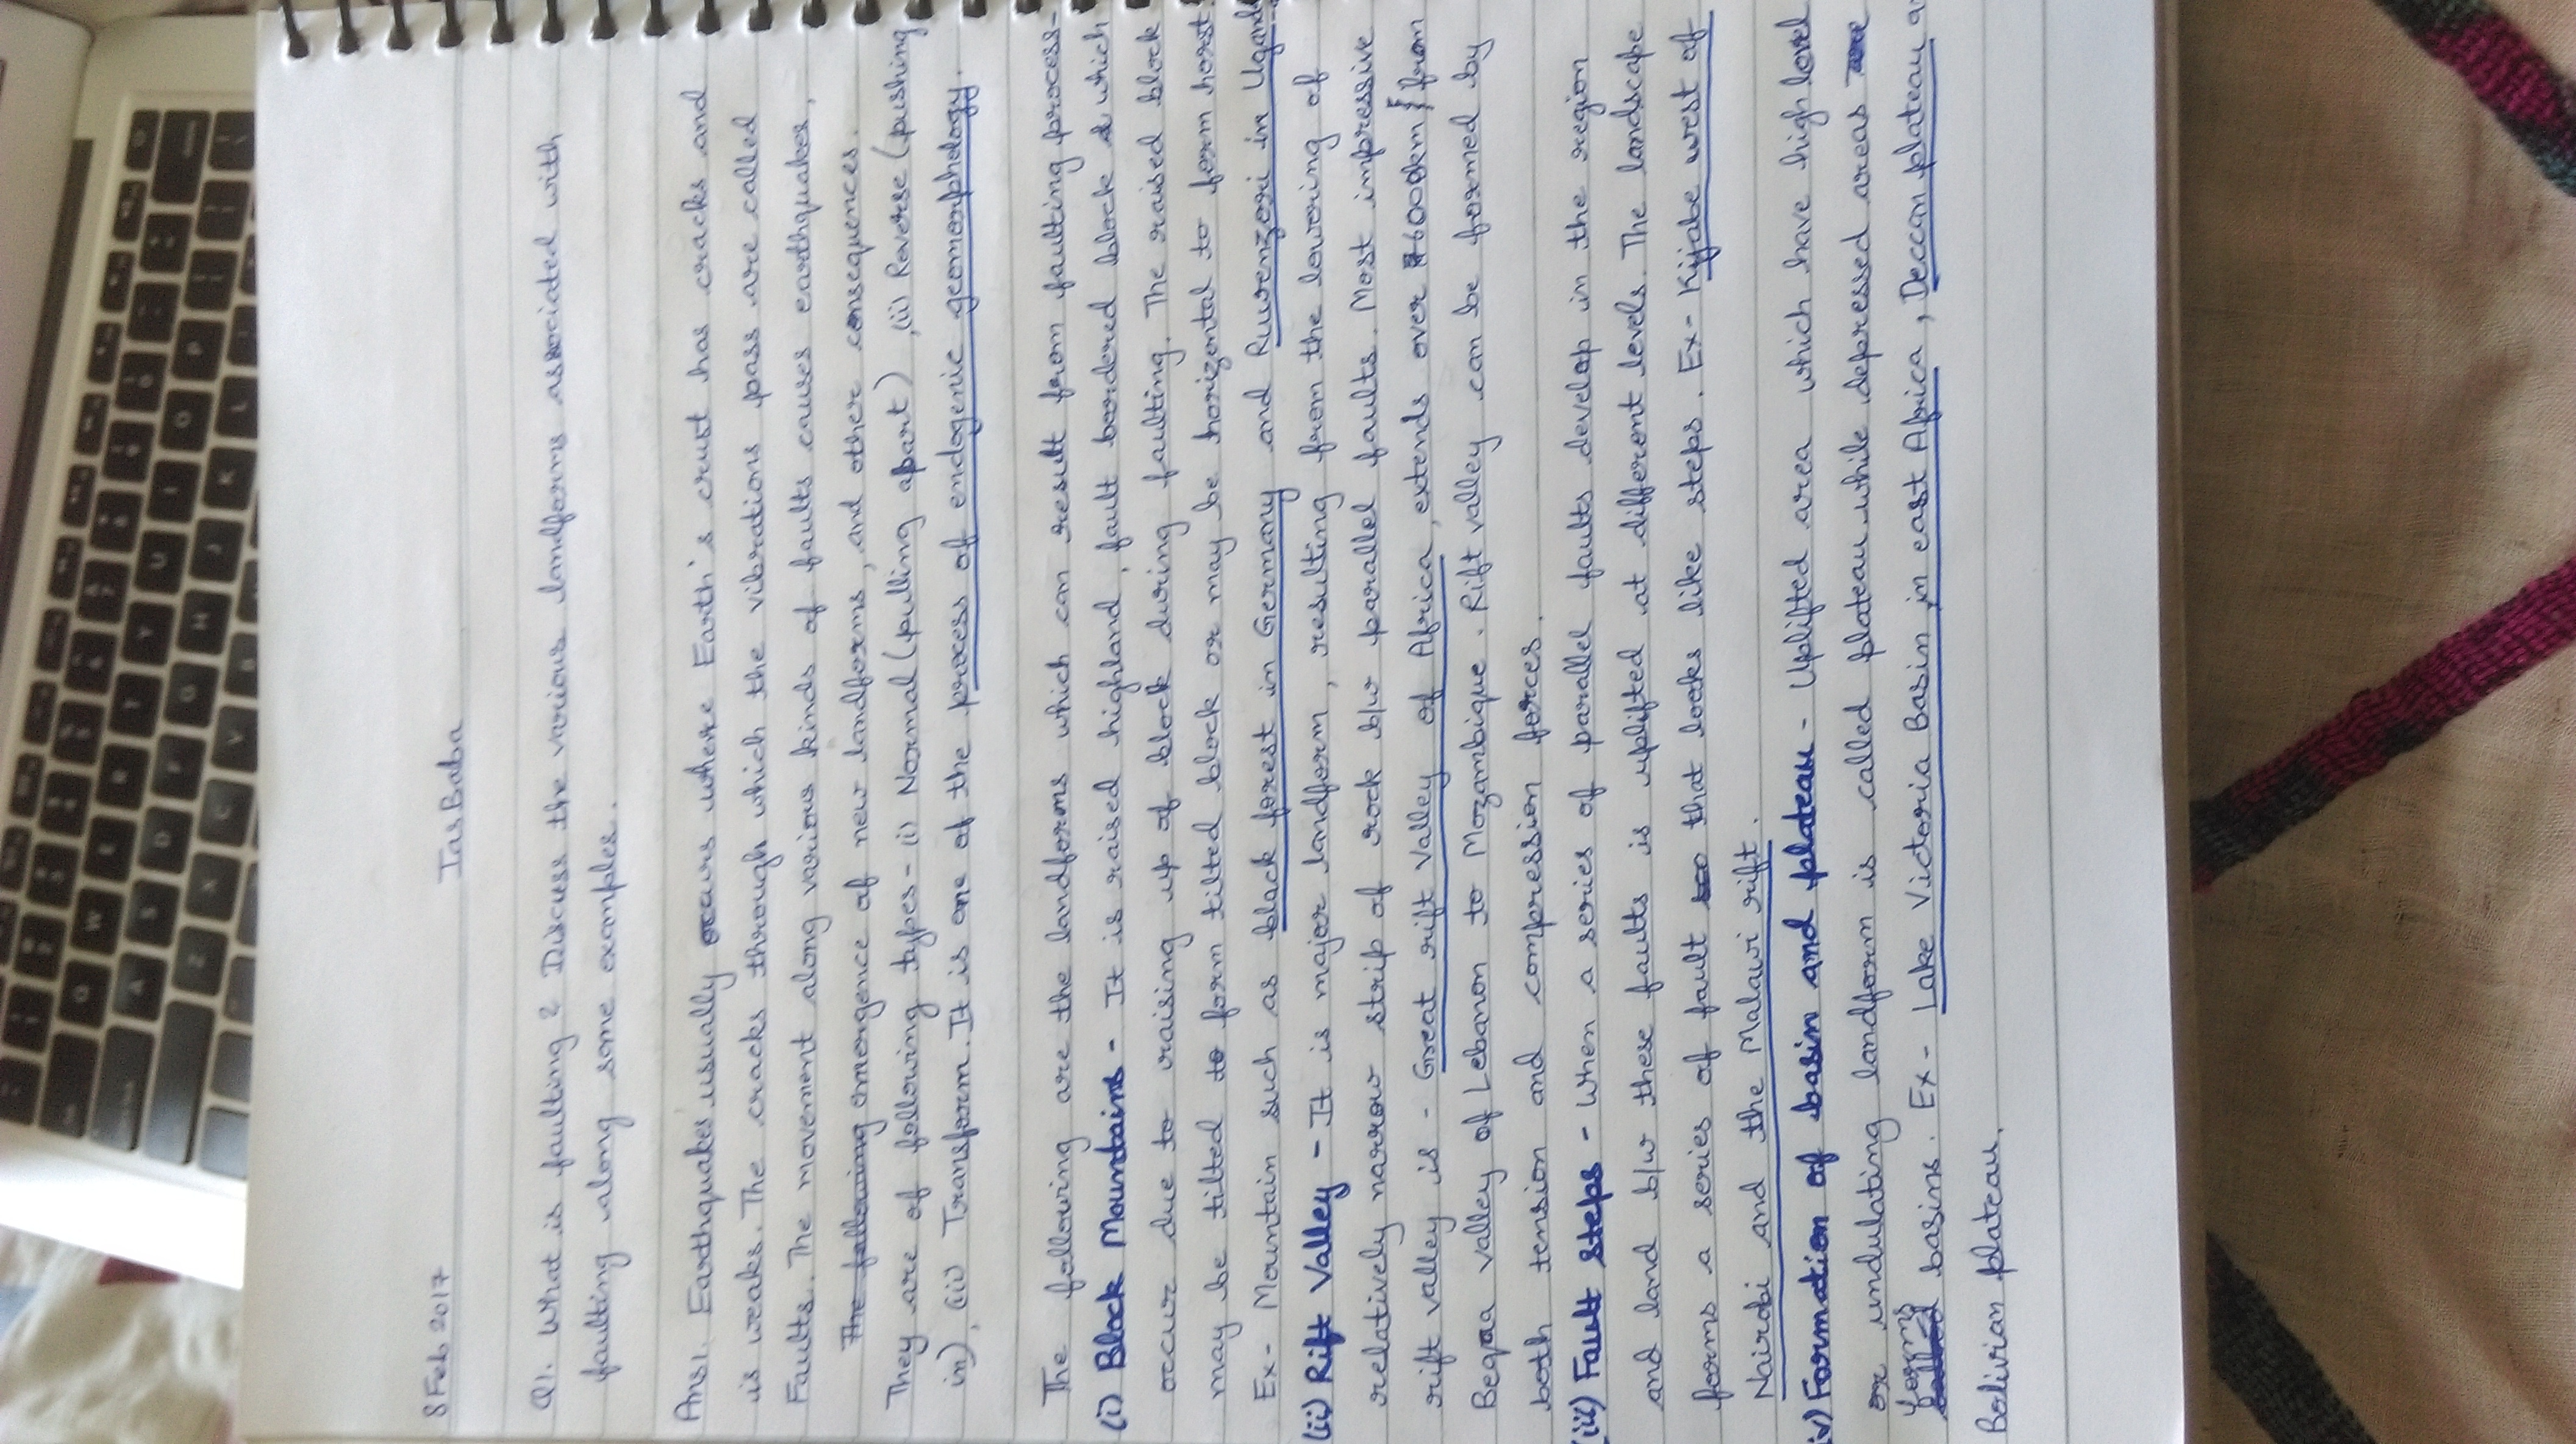 8 Feb 2017
IasBaba
Q1. What is faulting? Discuss the various landforms associated with
faulting along some examples.
Ans1. Earthquakes usually occurs where Earth's crust has cracks and
is weaks. The cracks through which the vibrations pass are called
Faults. The movement along various kinds of faults causes earthquakes,
The following emergence of new landforms, and other consequences.
They are of following types - (i) Normal (pulling apart), (ii) Reverse (pushing
in), (iii) Transform. It is one of the process of endogenic geomorphology.
The following are the landforms which can result from faulting process-
(i) Block Mountains - It is raised highland, fault bordered block & which
occur due to raising up of block during faulting. The raised block
may be tilted to form tilted block or may be horizontal to form horst.
Ex- Mountain such as black forest in Germany and Ruwenzori in Ugand
(ii) Rift Valley - It is major landform, resulting from the lowering of
relatively narrow strip of rock b/w parallel faults. Most impressive
rift valley is - Great rift valley of Africa, extends over 7600km, from
Beqaa valley of Lebanon to Mozambique. Rift valley can be formed by
both tension and compression forces.
(iii) Fault Steps - When a series of parallel faults develop in the region
and land b/w these faults is uplifted at different levels. The landscape
forms a series of fault that looks like steps. Ex- Kijabe west of
Nairobi and the Malawi rift.
iv) Formation of basin and plateau - Uplifted area which have high level
or undulating landform is called plateau while depressed areas are
forms called basins. Ex- Lake Victoria Basin in east Africa, Deccan plateau a
Bolivian plateau.